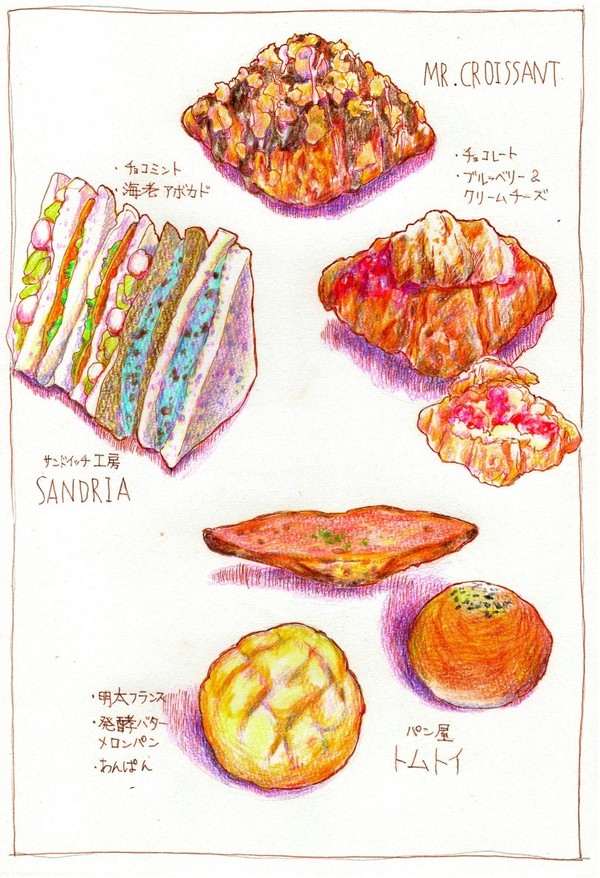 MR.CROISSANT
・チョコレート
・ブルーベリー&
クリームチーズ
・チョコミント
・海老アボカド
サンドイッチ工房
SANDRIA
・明太フランス
・発酵バター
メロンパン
・あんぱん
パン屋
トムトイ